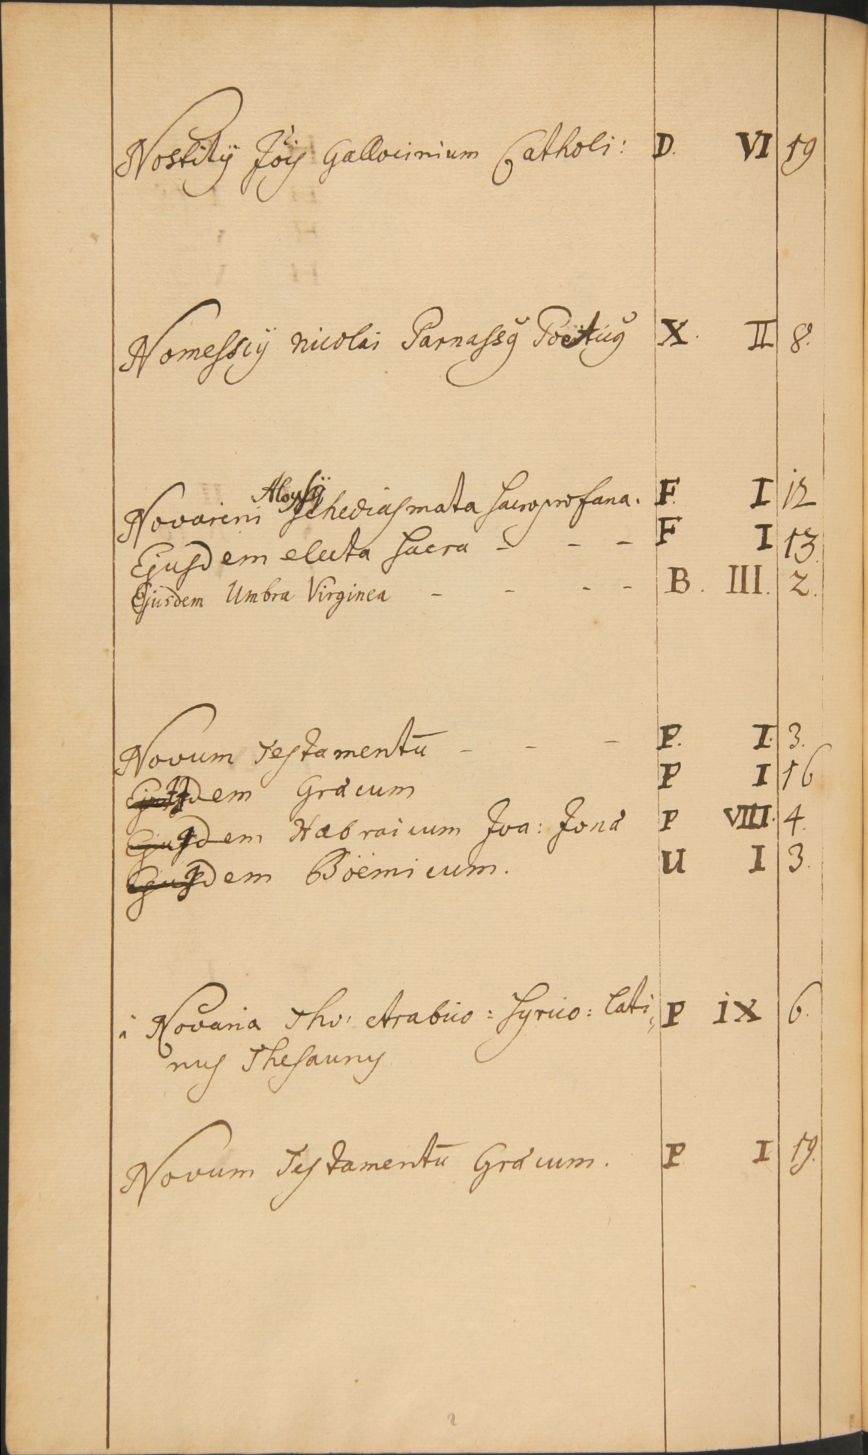 Nostitÿ Jõis Gallocinium Catholi: D. VI 19
Nomessiÿ nicolai Parnassũs Poëticũs X. II 8.
Aloysÿ
Novarini Schediasmata sacroprofana. F. I 12
Ejusdem electa sacra - - - F I 13.
Ejusdem Umbra Virginea - - - - B. III. 2.
Novum Testamentū - - - P. I. 3.
Idem Græcum P I 16
Idem Hæbraicum Joa: Jonæ P VIII. 4.
Idem Böemicum. U I 3.
Novaria Tho: Arabico: Syrico: Lati, P IX 6.
nus Thesaurus
Novum Testamentū Græcum. P I 19.